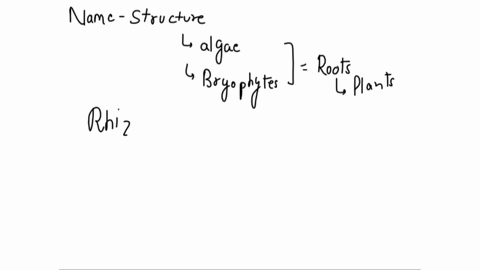 Name-Structure
↳ algae
↳ Bryophytes ] = Roots
↳ Plants
Rhiz